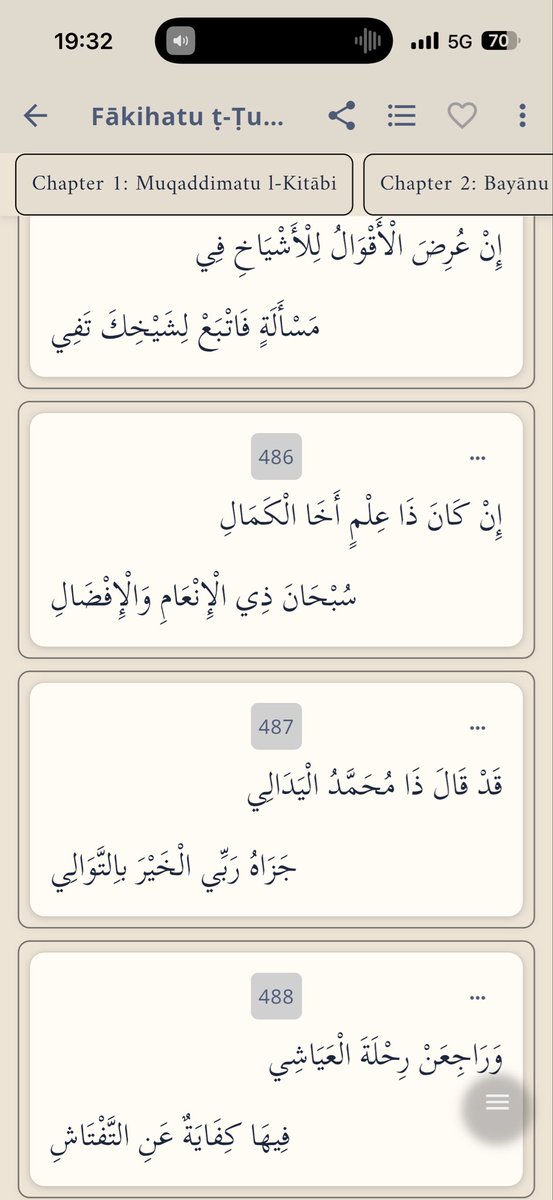 19:32
5G 70
Fākihatu ṭ-Ṭu...
Chapter 1: Muqaddimatu l-Kitābi
Chapter 2: Bayānu
إِنْ عُرِضَ الْأَقْوَالُ لِلْأَشْيَاخِ فِي
مَسْأَلَةٍ فَاتْبَعْ لِشَيْخِكَ تَفِي
486
إِنْ كَانَ ذَا عِلْمٍ أَخَا الْكَمَالِ
سُبْحَانَ ذِي الْإِنْعَامِ وَالْإِفْضَالِ
487
قَدْ قَالَ ذَا مُحَمَّدُ الْيَدَالِي
جَزَاهُ رَبِّي الْخَيْرَ بِالتَّوَالِي
488
وَرَاجِعَنْ رِحْلَةَ الْعَيَاشِي
فِيهَا كِفَايَةٌ عَنِ التَّفْتَاشِ